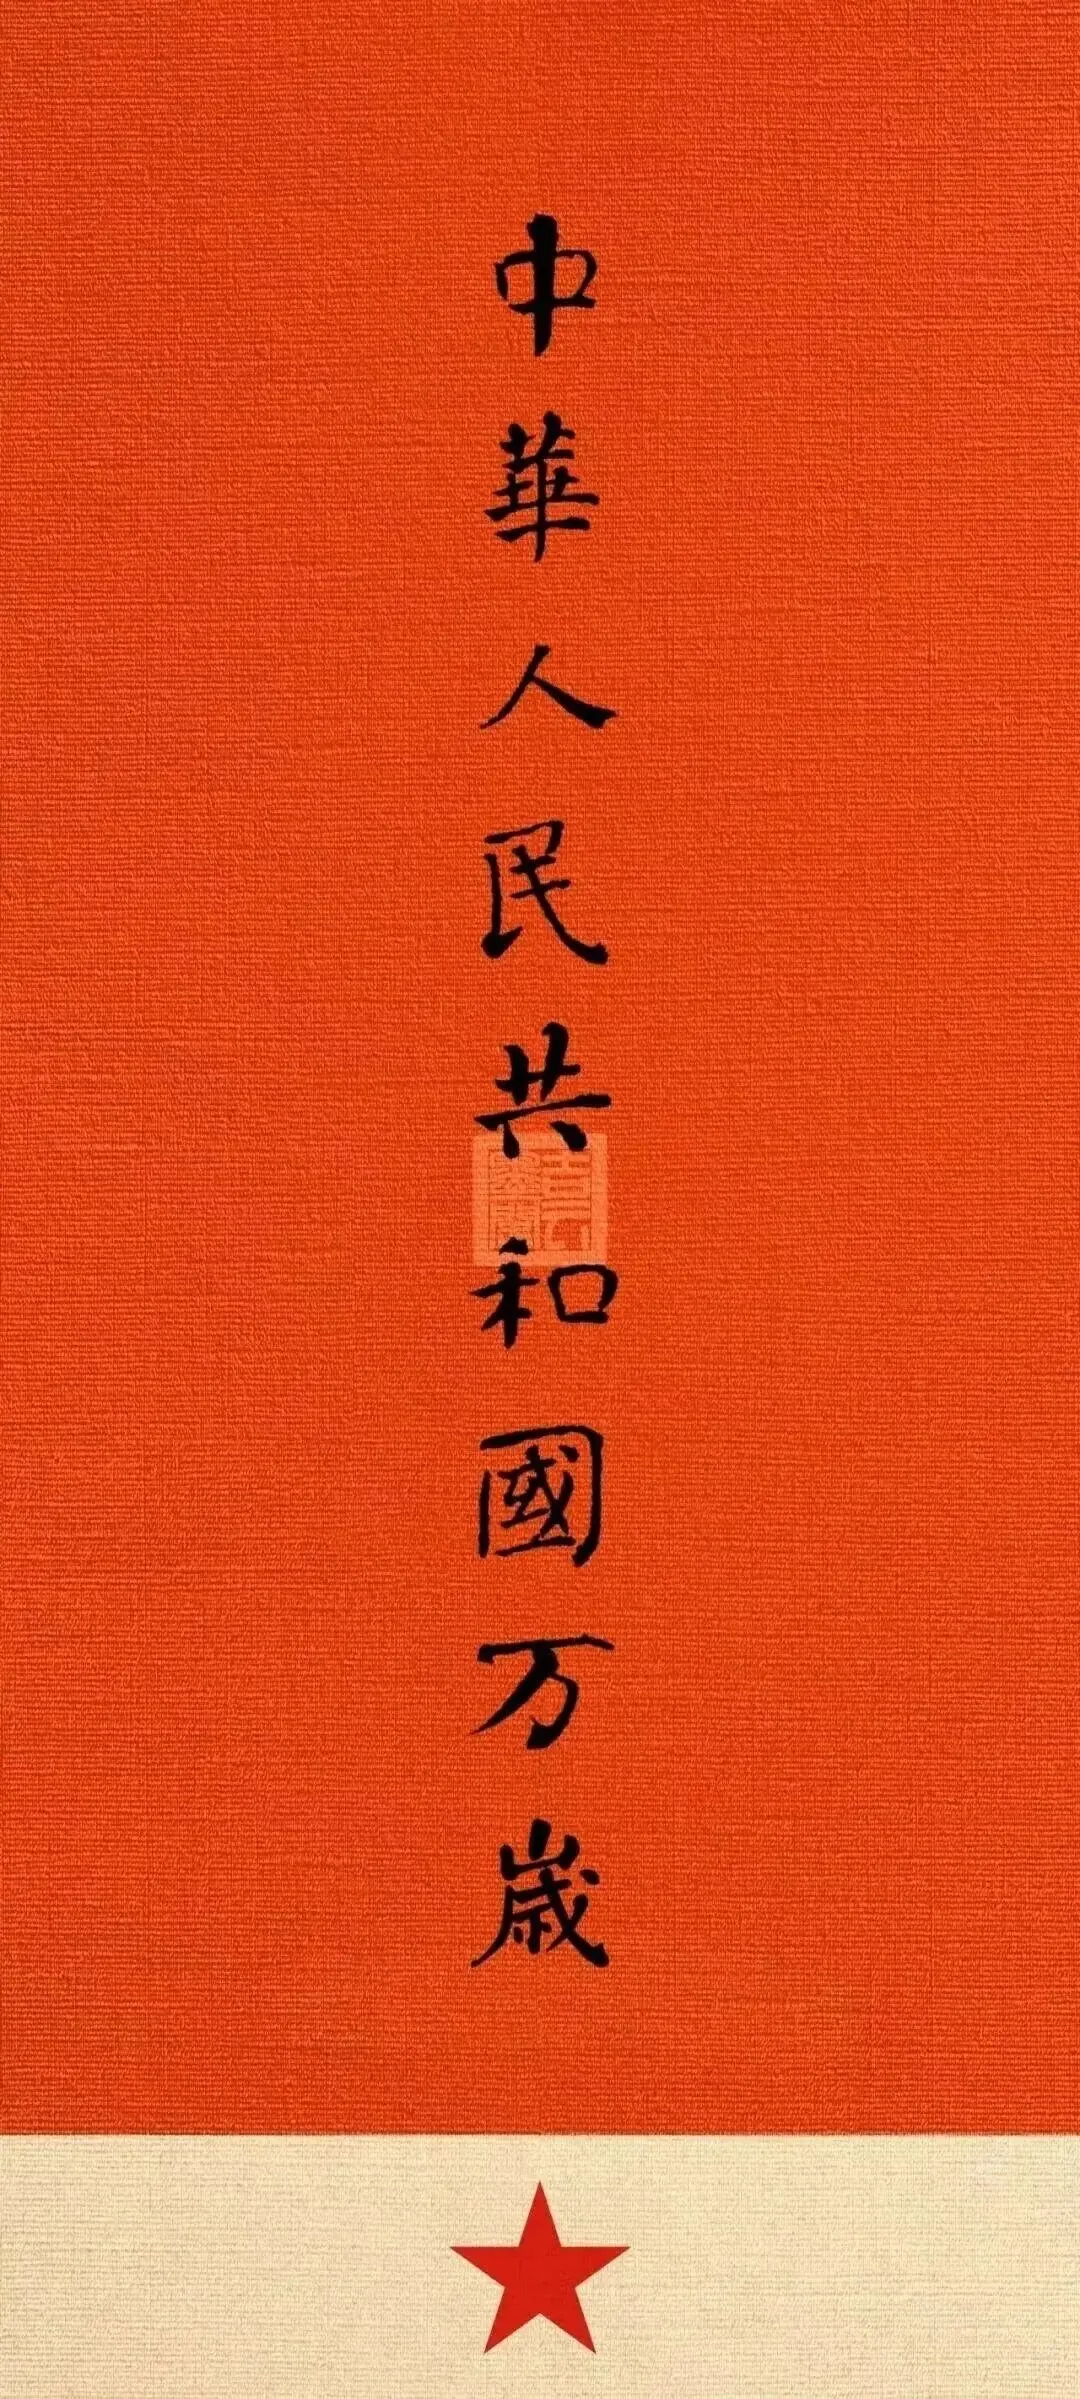 中華人民共和國万歳